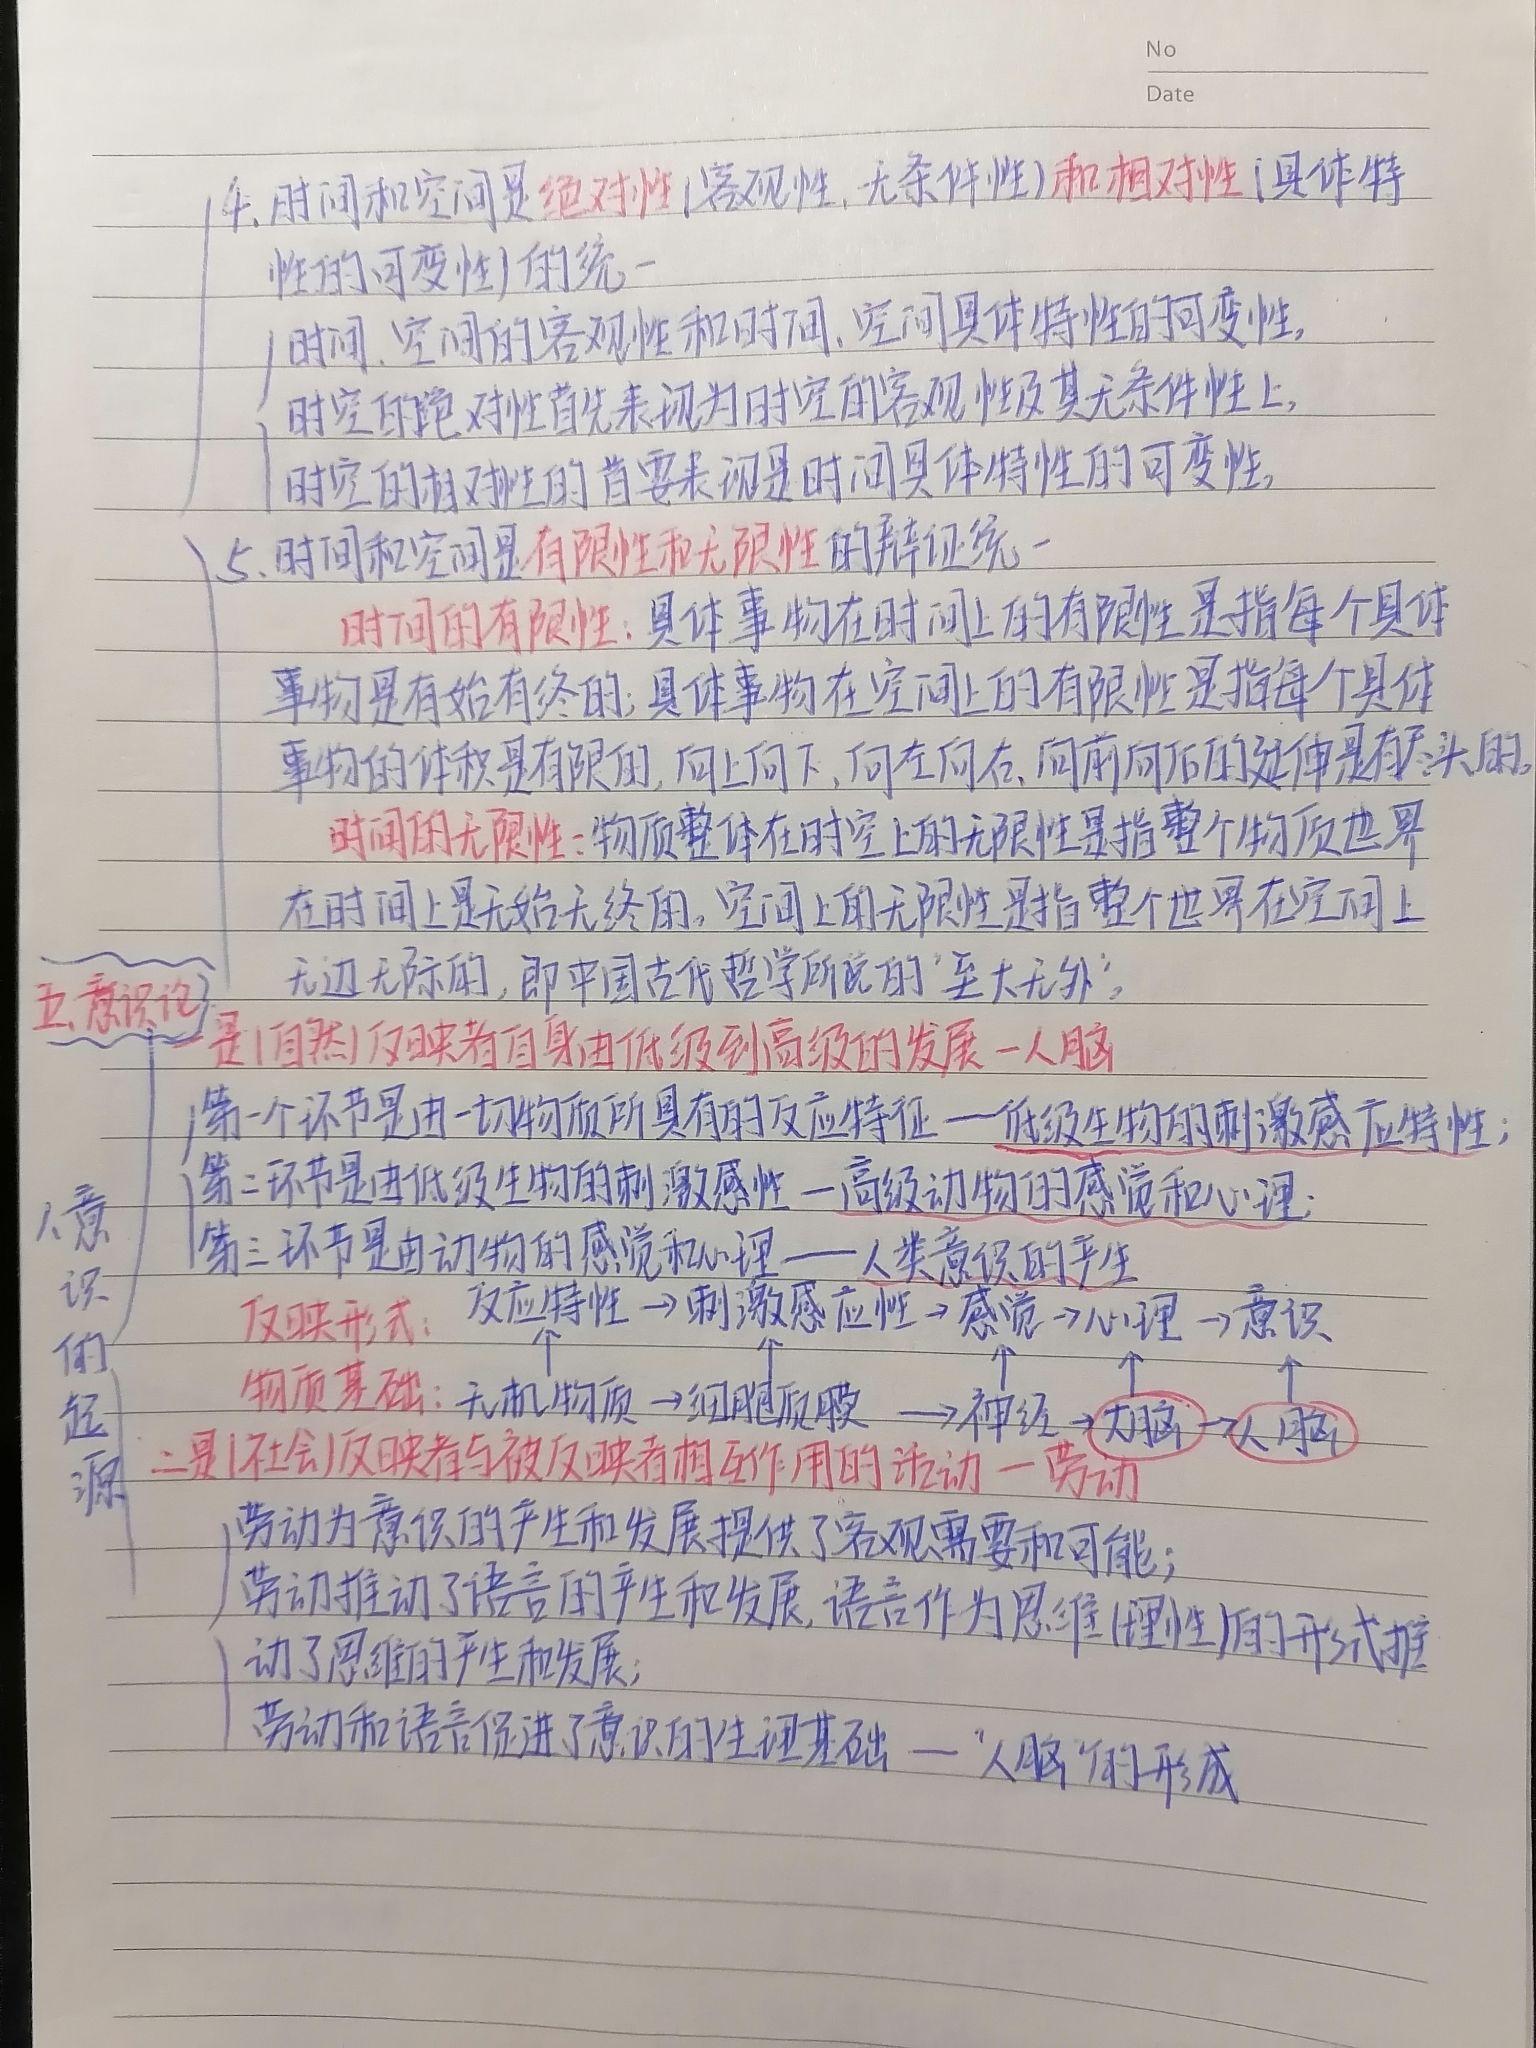 No
Date
4、时间和空间是绝对性(客观性、无条件性)和相对性(具体特
性的可变性)的统一
时间、空间的客观性和时间、空间具体特性的可变性,
时空的绝对性首先表现为时空的客观性及其无条件性上,
时空的相对性的首要表现是时间具体特性的可变性,
5、时间和空间是有限性和无限性的辩证统一
时间的有限性:具体事物在时间上的有限性是指每个具体
事物是有始有终的;具体事物在空间上的有限性是指每个具体
事物的体积是有限的,向上向下、向左向右、向前向后的延伸是有尽头的。
时间的无限性:物质整体在时空上的无限性是指整个物质世界
在时间上是无始无终的。空间上的无限性是指整个世界在空间上
无边无际的,即中国古代哲学所说的"至大无外",
五、意识论
一是(自然)反映者自身由低级到高级的发展—人脑
第一个环节是由一切物质所具有的反应特征——低级生物的刺激感应特性;
第二环节是由低级生物的刺激感性—高级动物的感觉和心理;
第三环节是由动物的感觉和心理——人类意识的产生
1、意识的起源
反映形式:反应特性→刺激感应性→感觉→心理→意识
物质基础:无机物质→细胞质膜→神经→大脑→人脑
二是(社会)反映者与被反映者相互作用的活动—劳动
劳动为意识的产生和发展提供了客观需要和可能;
劳动推动了语言的产生和发展,语言作为思维(理性)的形式推
动了思维的产生和发展;
劳动和语言促进了意识的生理基础——"人脑"的形成